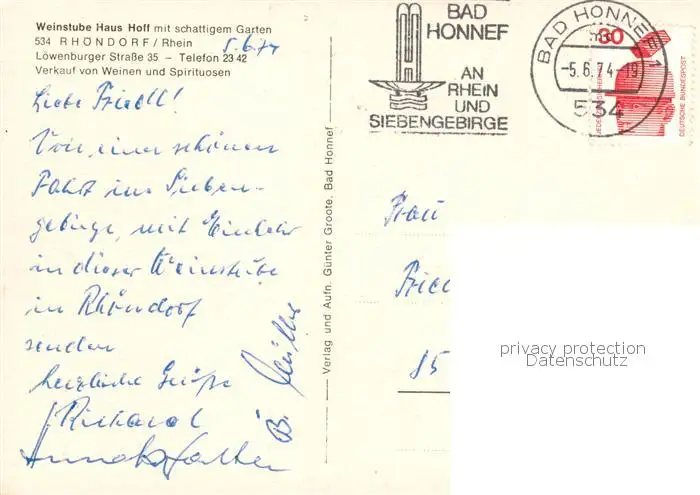 Weinstube Haus Hoff mit schattigem Garten
534 RHÖNDORF / Rhein
Löwenburger Straße 35 – Telefon 23 42
Verkauf von Weinen und Spirituosen
5.6.74
Liebe Friedl!
Von einer schönen
Fahrt ins Sieben-
gebirge, mit Einkehr
in dieser Weinstube
in Rhöndorf
senden
herzliche Grüße
Richard
B.
Verlag und Aufn. Günter Groote, Bad Honnef
BAD
HONNEF
AN
RHEIN
UND
SIEBENGEBIRGE
BAD HONNEF 1
-5.6.74-19
534
30
DEUTSCHE BUNDESPOST
Frau
85
privacy protection
Datenschutz